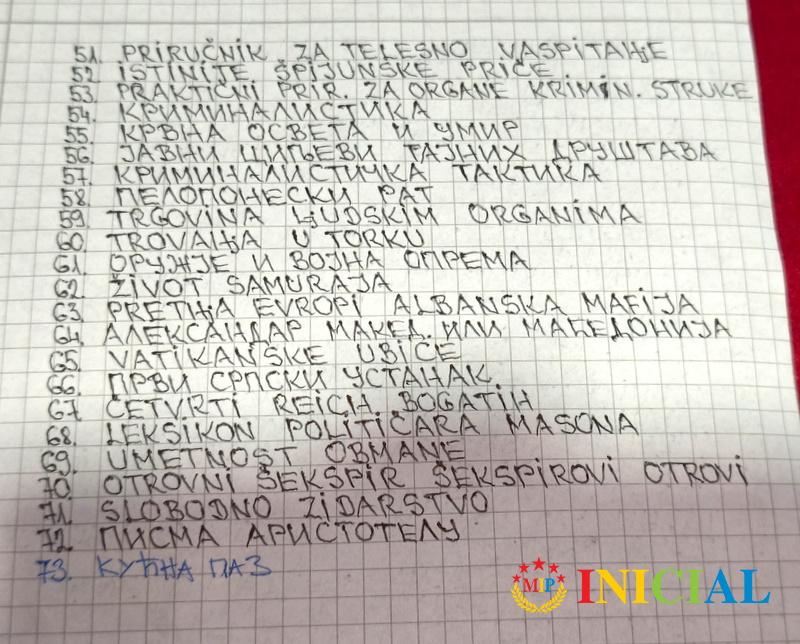 51. PRIRUČNIK ZA TELESNO VASPITAЊE
52 ISTINITE ŠPIJUNSKE PRIČE
53 PRAKTIČNI PRIR. ZA ORGANE KRIMIN. STRUKE
54. КРИМИНАЛИСТИКА
55 КРВНА ОСВЕТА И УМИР
56. ЈАВНИ ЦИЉЕВИ ТАЈНИХ ДРУШТАВА
57. КРИМИНАЛИСТИЧКА ТАКТИКА
58 ПЕЛОПОНЕСКИ РАТ
59 TRGOVINA ЉUDSKIM ORGANIMA
60. TROVAЊA U TORKU
61. ОРУЖЈЕ И ВОЈНА ОПРЕМА
62 ŽIVOT SAMURAJA
63. PRETЊA EVROPI ALBANSKA MAFIJA
64. АЛЕКСАНДАР МАКЕД. ИЛИ МАЋЕДОНИЈА
65. VATIKANSKE UBICE
66. ПРВИ СРПСКИ УСТАНАК
67 ČETVRTI REICH BOGATIH
68. LEKSIKON POLITIČARA MASONA
69. UMETNOST OBMANE
70. OTROVNI ŠEKSPIR ŠEKSPIROVI OTROVI
71. SLOBODNO ZIDARSTVO
72. ПИСМА АРИСТОТЕЛУ
73. КУЋНА ПАЗ
MIP INICIAL